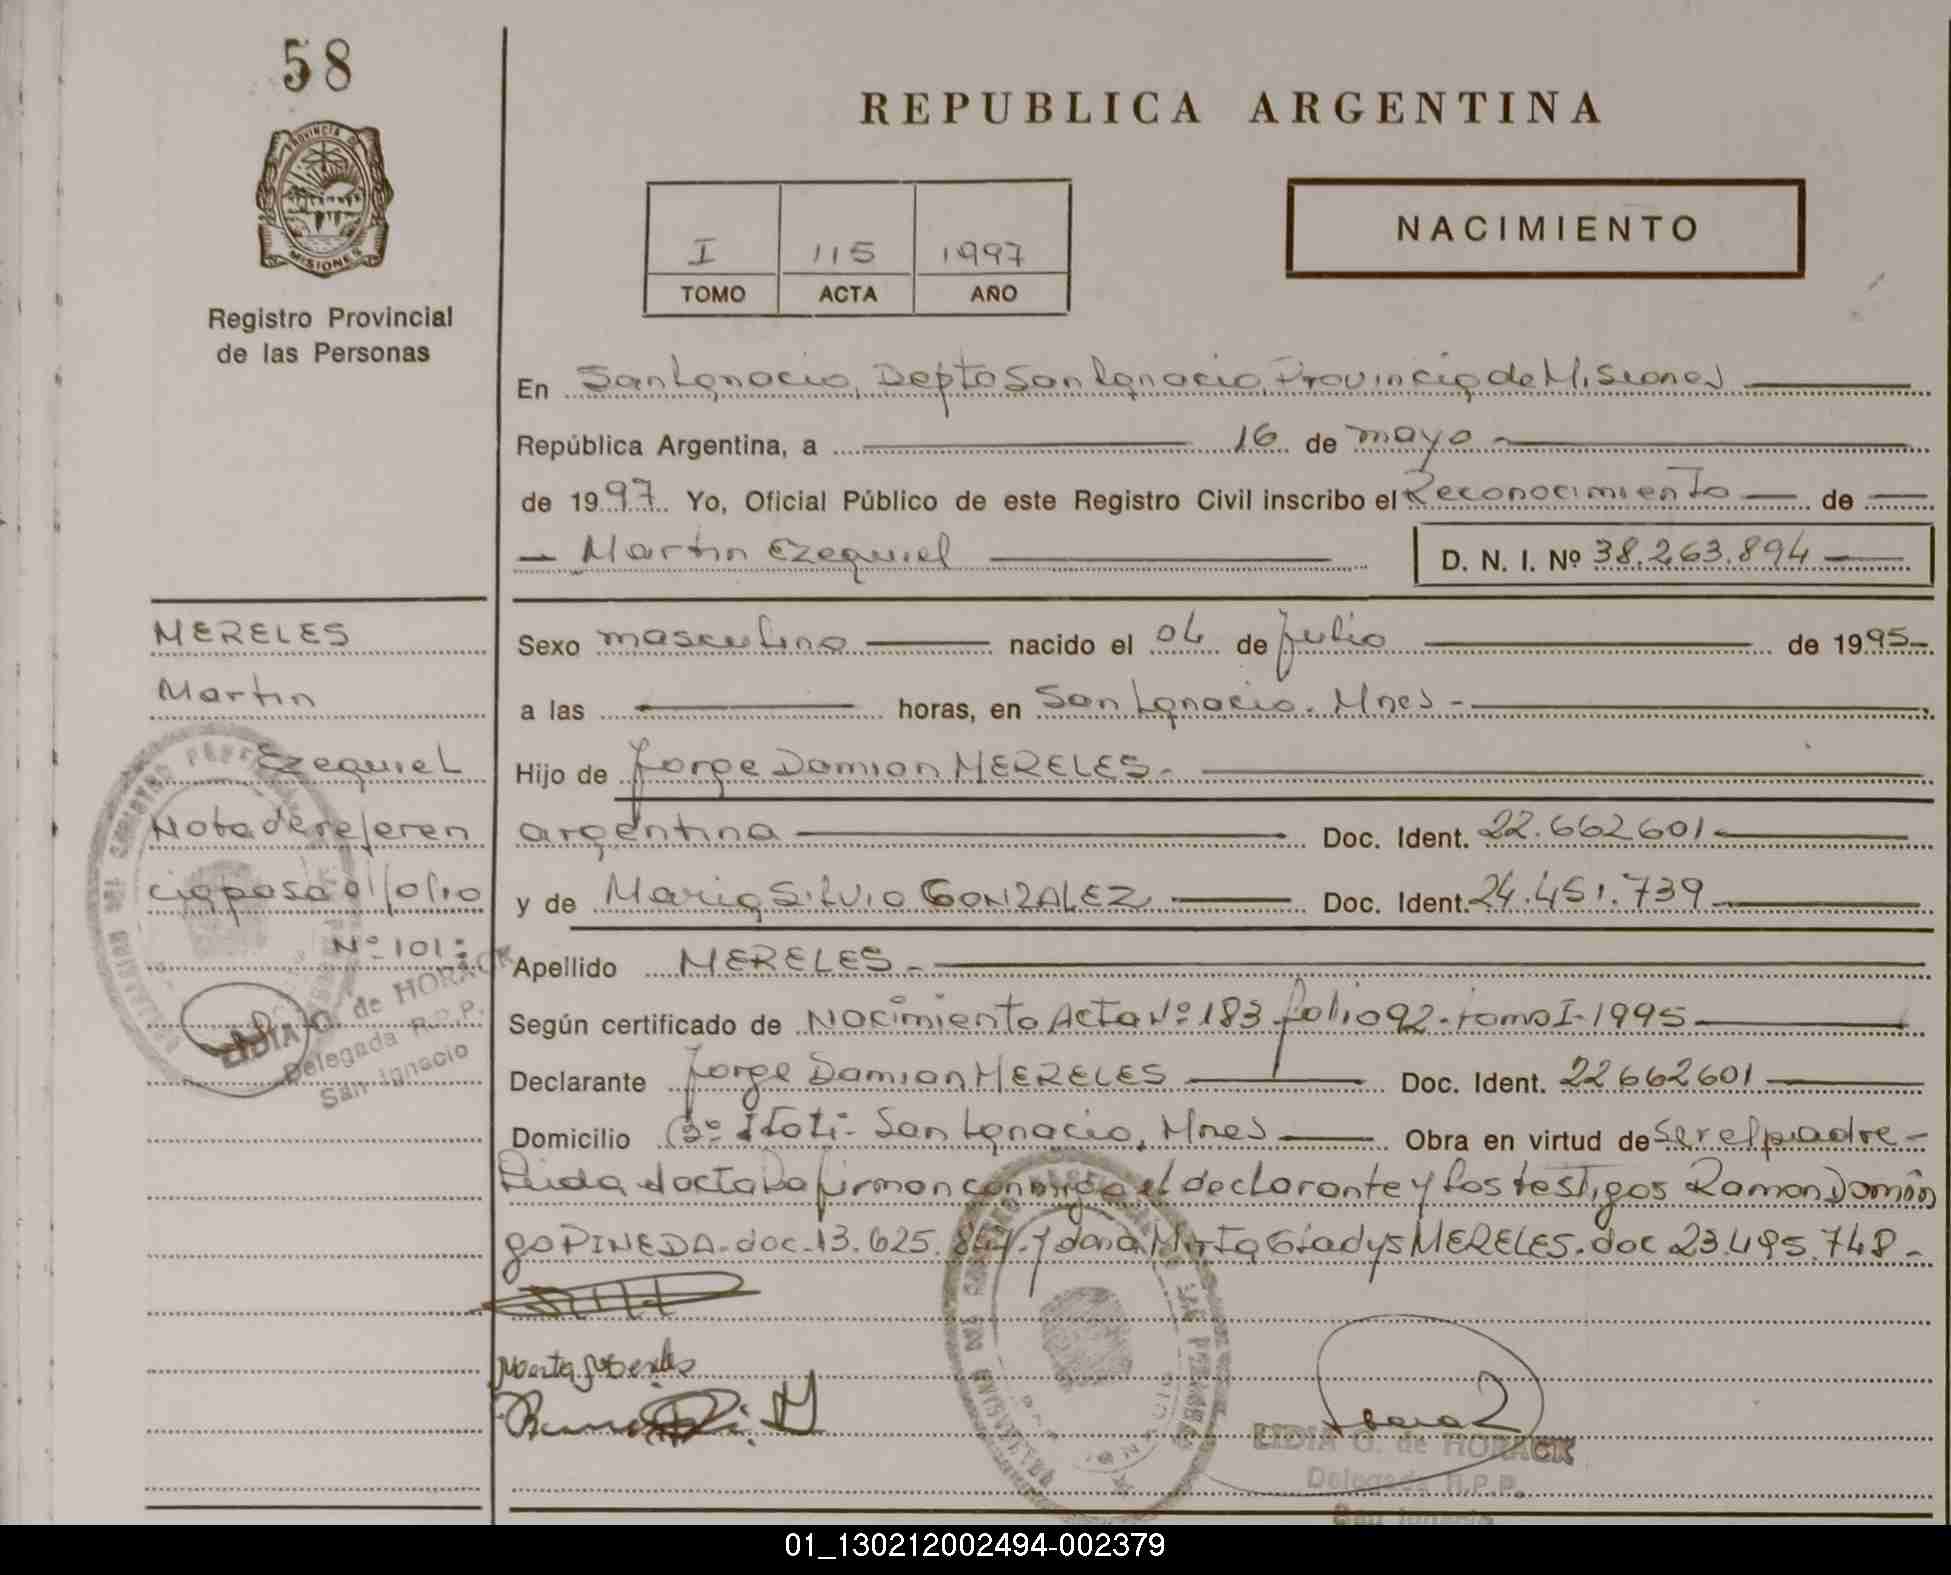 58
REPUBLICA ARGENTINA
PROVINCIA DE
MISIONES
Registro Provincial
de las Personas
I 115 1997
TOMO ACTA AÑO
NACIMIENTO
En San Ignacio, Depto San Ignacio, Provincia de Misiones
República Argentina, a 16 de mayo
de 1997. Yo, Oficial Público de este Registro Civil inscribo el Reconocimiento de
Martin Ezequiel D. N. I. Nº 38.263.894
MERELES
Martin
Ezequiel
Nota de referen
cia pasa al folio
Nº 101:
LIDIA O. de HORACK
Delegada R.P.P.
San Ignacio
Sexo masculino nacido el 04 de Julio de 1995
a las horas, en San Ignacio. Mnes -
Hijo de Jorge Damian MERELES -
argentina Doc. Ident. 22.662601
y de Maria Silvia GONZALEZ Doc. Ident. 24.451.739
Apellido MERELES -
Según certificado de Nacimiento Acta Nº 183 folio 92 - tomo I - 1995
Declarante Jorge Damian MERELES Doc. Ident. 22662601
Domicilio Bº Itati - San Ignacio, Mnes Obra en virtud de Ser el padre -
Leida el acta la firman conmigo el declarante y los testigos Ramon Domin
go PINEDA - doc. 13.625. y dona Gladys MERELES. doc 23.495.748 -
LIDIA O. de HORACK
Delegada R.P.P.
San Ignacio
01_130212002494-002379